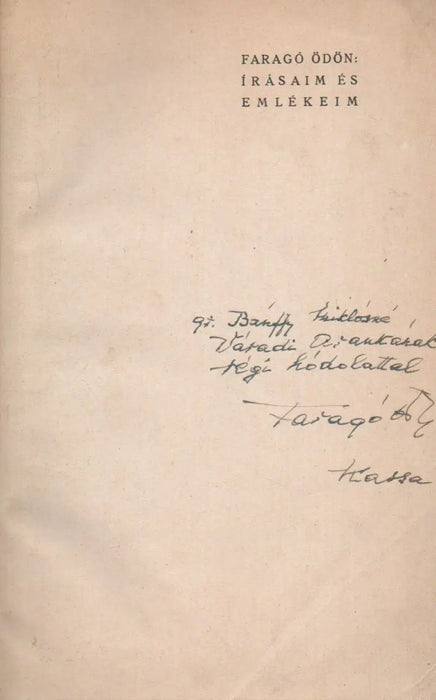 FARAGÓ ÖDÖN:
ÍRÁSAIM ÉS
EMLÉKEIM
gr. Bánffy Miklósné
Váradi Arankának
régi hódolattal
Faragó Ö
Kassa